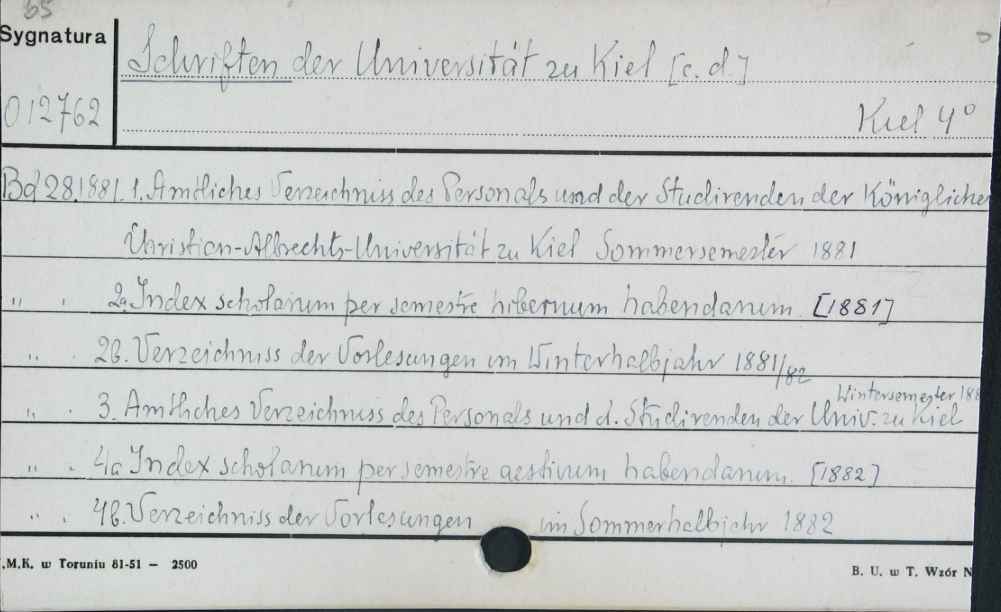 65
Sygnatura
Schriften der Universität zu Kiel [c.d.]
012762
Kiel 4°
Bd 28.1881. 1. Amtliches Verzeichniss des Personals und der Studirenden der Königliche
Christian-Albrechts-Universität zu Kiel Sommersemester 1881
" . 2a. Index scholarum per semestre hibernum habendarum [1881]
" . 2b. Verzeichniss der Vorlesungen im Winterhalbjahr 1881/82
Wintersemester 188
" . 3. Amtliches Verzeichniss des Personals und d. Studirenden der Univ. zu Kiel
" . 4a Index scholarum per semestre aestivum habendarum. [1882]
" . 4b. Verzeichniss der Vorlesungen im Sommerhalbjahr 1882
.M.K. w Toruniu 81-51 — 2500
B. U. w T. Wzór N